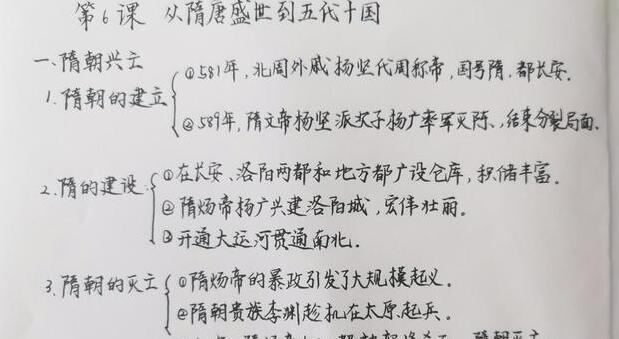 第6课 从隋唐盛世到五代十国
一、隋朝兴亡
①581年，北周外戚杨坚代周称帝，国号隋，都长安.
1.隋朝的建立
②589年，隋文帝杨坚派次子杨广率军灭陈、结束分裂局面.
①在长安、洛阳两都和地方都广设仓库，积储丰富.
2.隋的建设
②隋炀帝杨广兴建洛阳城，宏伟壮丽.
③开通大运河贯通南北.
3.隋朝的灭亡
①隋炀帝的暴政引发了大规模起义.
②隋朝贵族李渊趁机在太原起兵.